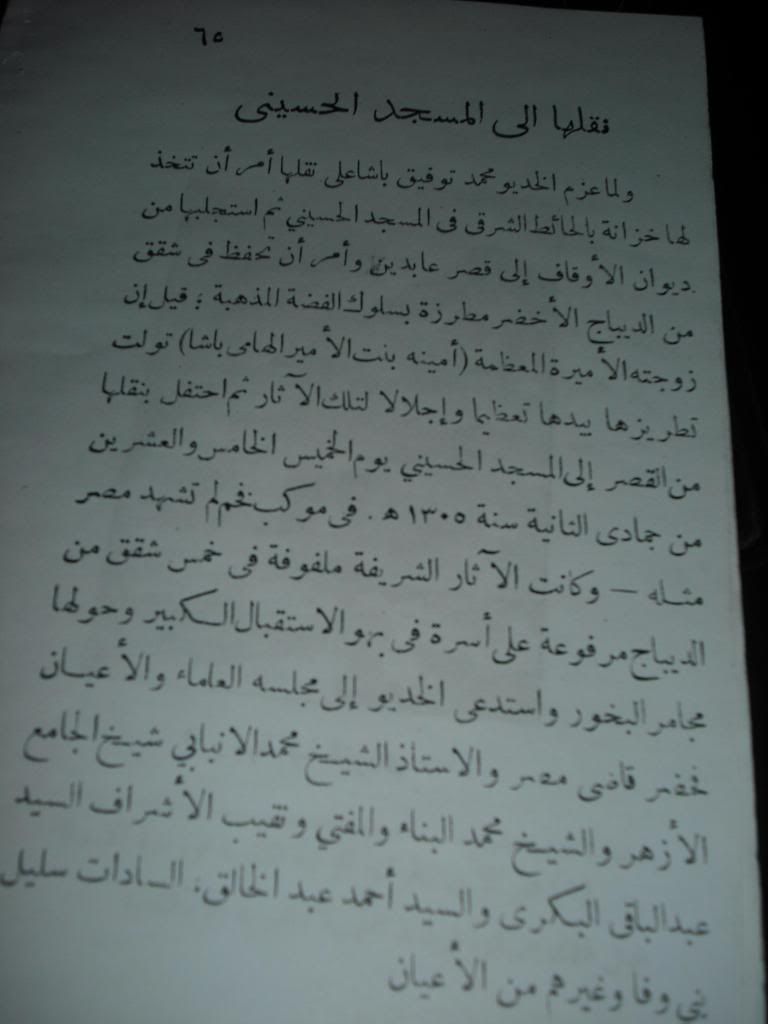 ٦٥
فقلها الى المسجد الحسينى
ولما عزم الخديو محمد توفيق باشا على نقلها أمر أن تتخذ
لها خزانة بالحائط الشرقى فى المسجد الحسيني ثم استجلبها من
ديوان الأوقاف إلى قصر عابدين وأمر أن تحفظ فى شقق
من الديباج الأخضر مطرزة بسلوك الفضة المذهبة ؛ قيل إن
زوجته الأميرة المعظمة (أمينه بنت الأمير الهامى باشا) تولت
تطريزها بيدها تعظيما وإجلالا لتلك الآثار ثم احتفل بنقلها
من القصر إلى المسجد الحسيني يوم الخميس الخامس والعشرين
من جمادى الثانية سنة ١٣٠٥ هـ . فى موكب فخم لم تشهد مصر
مثله — وكانت الآثار الشريفة ملفوفة فى خمس شقق من
الديباج مرفوعة على أسرة فى بهو الاستقبال الكبير وحولها
مجامر البخور واستدعى الخديو إلى مجلسه العلماء والأعيان
فحضر قاضى مصر والاستاذ الشيخ محمد الانبابي شيخ الجامع
الأزهر والشيخ محمد البناء والمفتي ونقيب الأشراف السيد
عبد الباقى البكرى والسيد أحمد عبد الخالق، السادات سليل
بني وفا وغيرهم من الأعيان